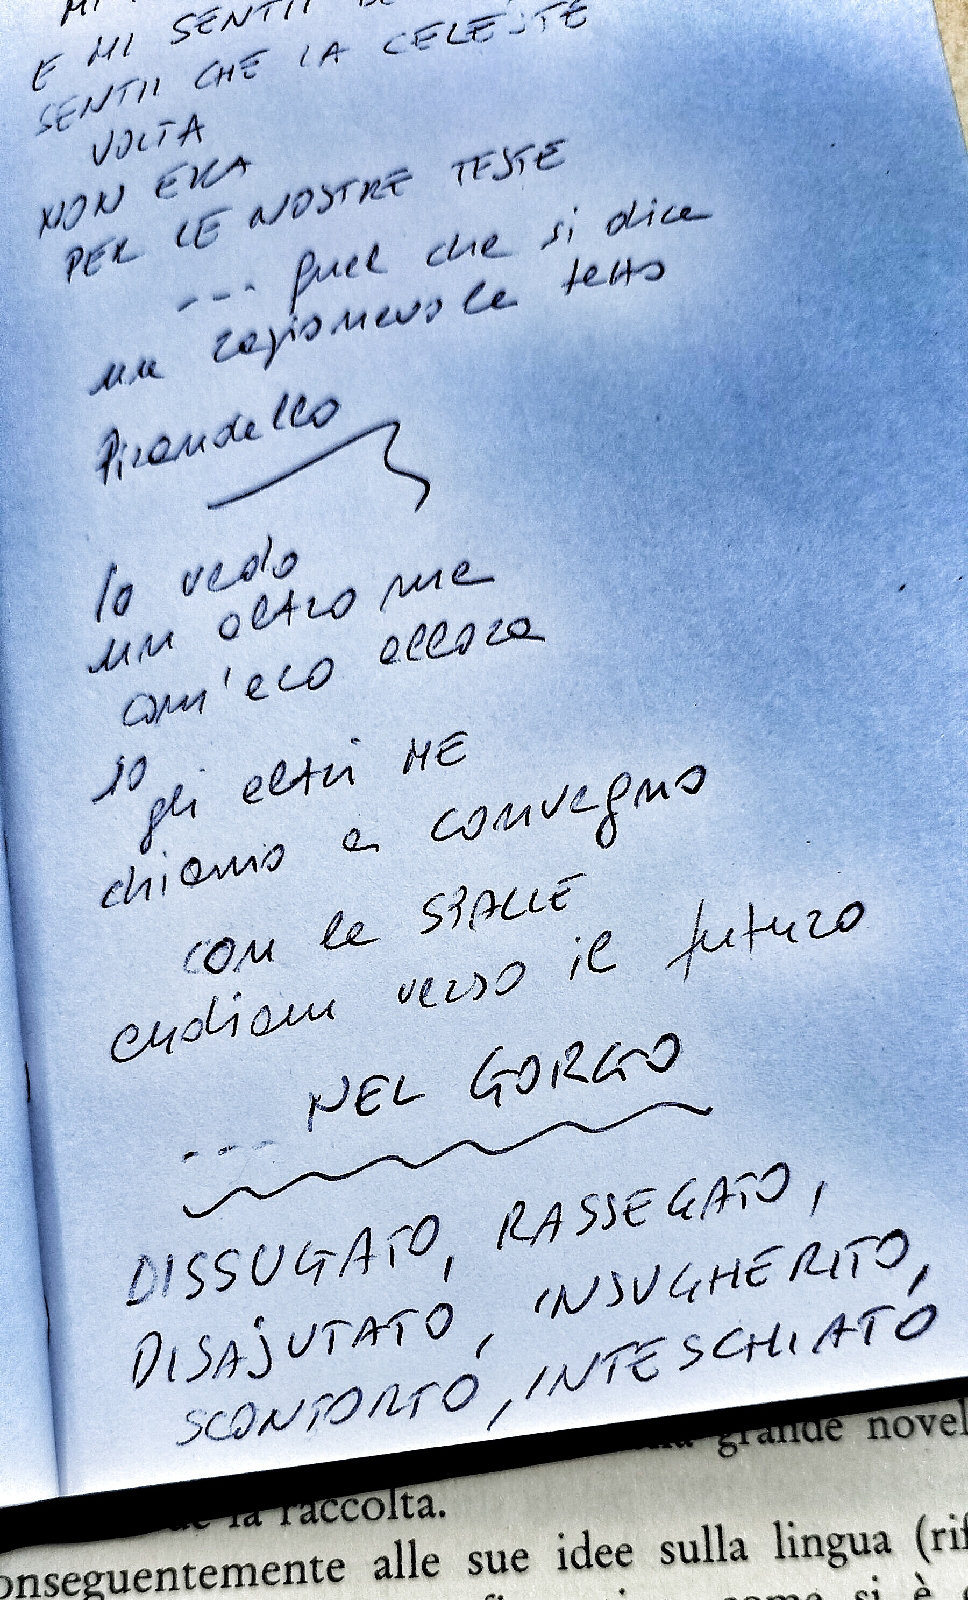 E MI SENTII
SENTII CHE LA CELESTE
VOLTA
NON ERA
PER LE NOSTRE TESTE
--- quel che si dice
un ragionevole tetto
Pirandello
Io vedo
un altro me
com'ero allora
Io
gli altri ME
chiamo a convegno
con le SPALLE
andiam verso il futuro
--- NEL GORGO
DISSUGATO, RASSEGATO,
DISAJUTATO, INSUGHERITO,
SCONTORTO, INTESCHIATO
grande novel
la raccolta.
onseguentemente alle sue idee sulla lingua (rif
come si è